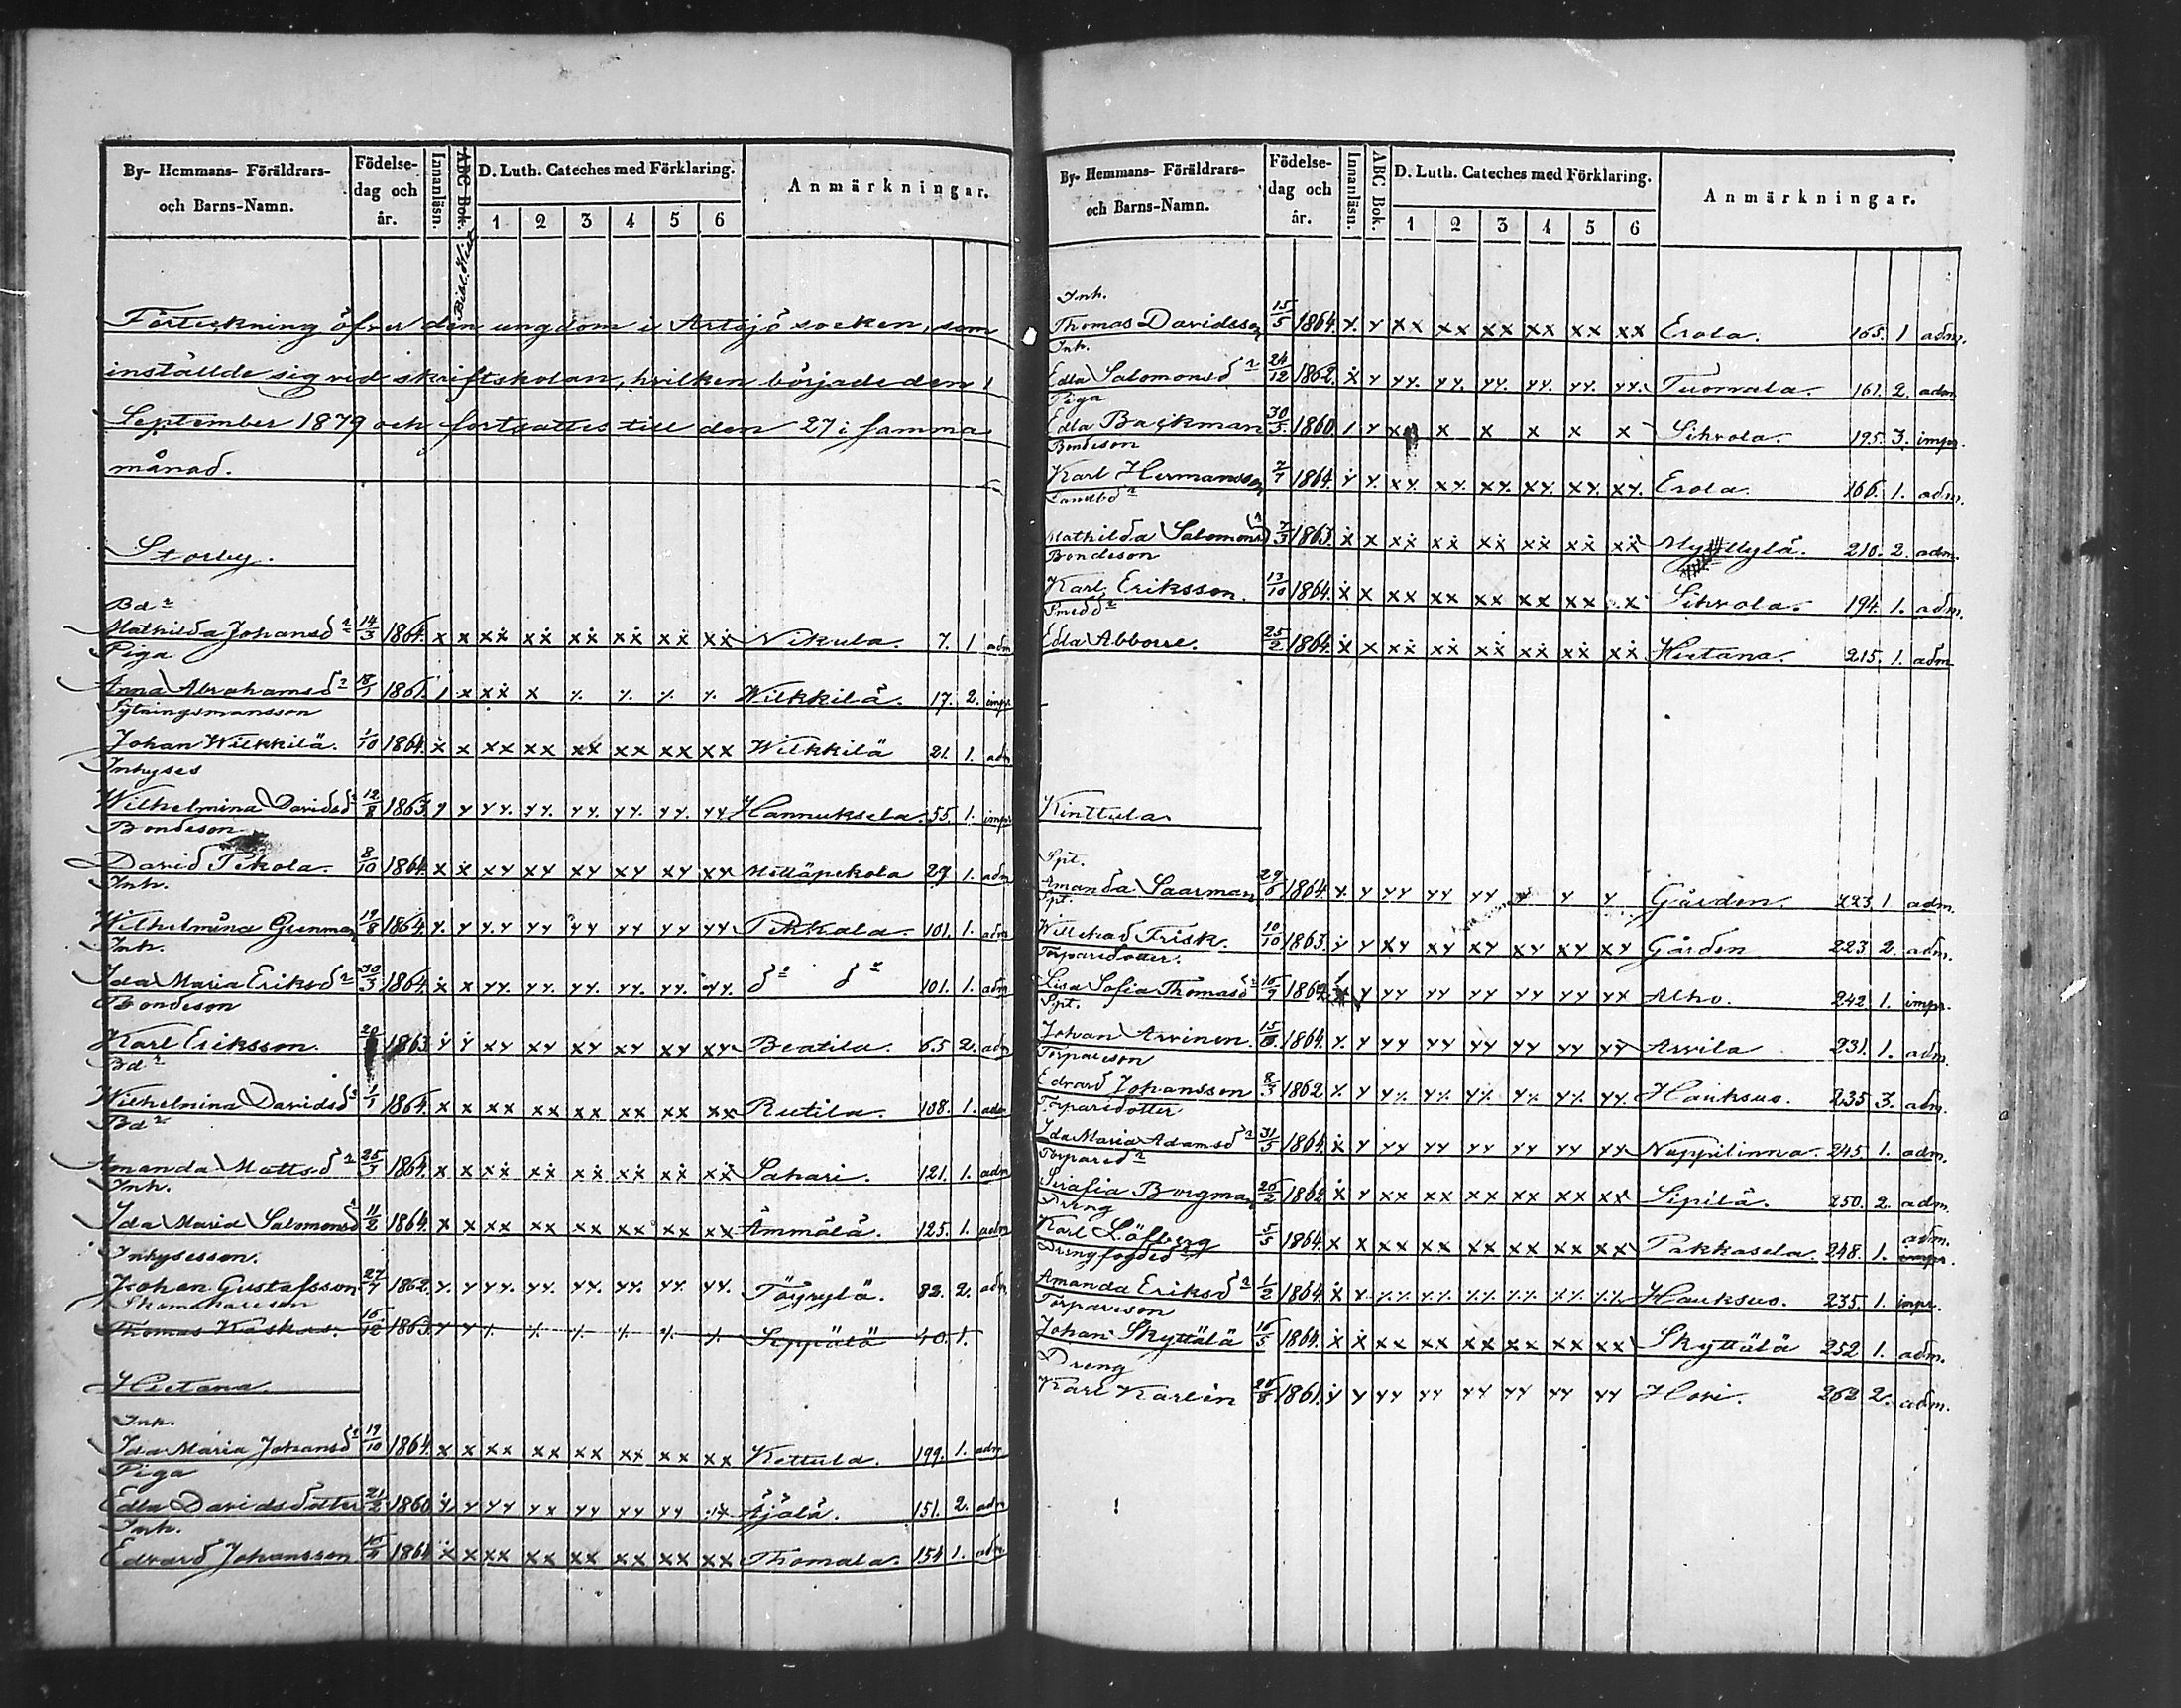 By- Hemmans- Föräldrars- och Barns-Namn. Födelse-dag och år. Innanläsn. ABC Bok. D. Luth. Cateches med Förklaring. 1 2 3 4 5 6 Anmärkningar.
Bibl. Hist.
Förteckning öfver den ungdom i Artsjö socken, som
inställde sig vid skriftskolan, hvilken började den 1
September 1879 och fortsattes till den 27 i samma
månad.
Storby.
Bd r
Mathilda Johansd r 14/3 1864. x x xx xx xx xx xx xx Nikula. 7. 1 adm
Piga
Anna Abrahamsd r 18/1 1861. 1 x xx x Wilkkilä. 17. 2. impr
Sytningsmansson
Johan Wilkkilä. 1/10 1864. x x xx xx xx xx xx xx Wilkkilä 21. 1. adm
Inhyses
Wilhelmina Davidsd r 12/8 1863. Hannuksela. 55. 1. impr
Bondeson
David Pekola. 8/10 1864. Milläpekola 29. 1. adm
Inh.
Wilhelmina Grenman 19/8 1864. Pikkala. 101. 1. adm
Inh.
Ida Maria Eriksd r 30/3 1864. d o d o 101. 1. adm
Bondeson
Karl Eriksson. 1863. Beatila. 65 2. adm
Bd r
Wilhelmina Davidsd r 1/1 1864. x x xx xx xx xx xx xx Rutila. 108. 1. adm
Bd r
Amanda Mattsd r 25/7 1864. x x xx xx xx xx xx xx Sahari. 121. 1. adm
Inh.
Ida Maria Salomonsd r 11/2 1864. x x xx xx xx xx xx xx Ämmälä. 125. 1. adm
Inhysesson.
Johan Gustafsson 27/7 1862. Töyrylä. 82. 2. adm.
Skomakareson
Thomas Kaskas. 16/12 1863. Seppälä 40. 1.
Hietana.
Inh.
Ida Maria Johansd r 19/10 1864. x x xx xx xx xx xx xx Kettula. 199. 1. adm
Piga
Edla Davidsdotter 21/2 1860. Äjälä. 151. 2. adm
Inh.
Edvard Johansson 1864 x x xx xx xx xx xx xx Thomala. 154 1. adm
By- Hemmans- Föräldrars- och Barns-Namn. Födelse-dag och år. Innanläsn. ABC Bok. D. Luth. Cateches med Förklaring. 1 2 3 4 5 6 Anmärkningar.
Inh.
Thomas Davidsson 15/5 1864. xx xx xx xx xx xx Erola. 165. 1 adm.
Inh.
Edla Salomonsd r 24/12 1862. Tuomala. 161. 2. adm
Piga
Edla Backman 30/3 1860. x x x x x x Sihvola. 195. 3. impr.
Bondeson
Karl Hermansson 7/7 1864. Erola. 166. 1. adm.
Landbd r
Mathilda Salomonsd r 7/3 1863. x x xx xx xx xx xx xx Myllylä. 210. 2. adm.
Bondeson
Karl Eriksson. 13/10 1864. x x xx xx xx xx xx xx Sihvola. 194. 1. adm.
Smedd r
Edla Abborre. 25/2 1864. x x xx xx xx xx xx xx Hietana. 215. 1. adm
Kinttula.
Spt.
Amanda Saarman 29/6 1864. Gården. 223. 1 adm.
Spt.
Willehad Frisk. 10/10 1863. Gården 223 2. adm.
Torparedotter.
Lisa Sofia Thomasd r 16/9 Alho. 242. 1. impr.
Spt.
Johan Arvinen. 1864. Arvila 231. 1. adm.
Torpareson
Edvard Johansson 8/3 1862 Hauksuo. 235 3. adm.
Torparedotter
Ida Maria Adamsd r 31/5 1864. Nappilinna. 245. 1. adm.
Torpared r
Serafia Borgman 26/2 1862 x y xx xx xx xx xx xx Sipilä. 250. 2. adm
Dreng
Karl Löfberg 5/5 1864. x x xx xx xx xx xx xx Pakkasela 248. 1. adm. impr.
Drengfogded r
Amanda Eriksd r 1/2 1864. Hauksuo. 235. 1. impr.
Torpareson
Johan Skyttälä 16/5 1864. x x xx xx xx xx xx xx Skyttälä 252 1. adm.
Dreng
Karl Karlin 26/8 1861. Hovi. 262 2. adm.